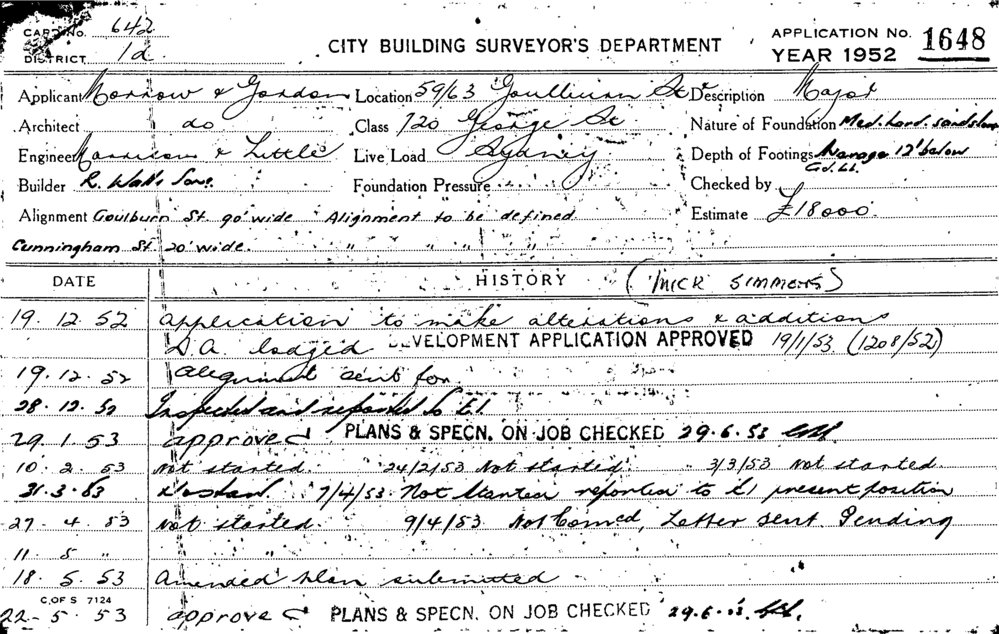 CARD No. 642
DISTRICT 1d.
CITY BUILDING SURVEYOR'S DEPARTMENT
APPLICATION No. 1648
YEAR 1952
Applicant Morrow & Gordon Location 59/63 Goulburn St Description Major
Architect do Class 720 George St Nature of Foundation Med. hard. sandstone
Engineer Morrison & Little Live Load Sydney Depth of Footings Average 12' below
Gd. Lt.
Builder R. Wall & Sons. Foundation Pressure Checked by
Alignment Goulburn St. 90' wide Alignment to be defined. Estimate £18000.
Cunningham St. 20' wide. " " " "
DATE HISTORY (MICK SIMMONS)
19.12.52 Application to make alterations & additions
D.A. lodged DEVELOPMENT APPLICATION APPROVED 19/1/53 (1208/52)
19.12.52 Alignment sent for
28.12.52 Inspected and reported to
29.1.53 approved PLANS & SPECN. ON JOB CHECKED 29.6.53
10.2.53 Not started. 24/2/53 Not started. 3/3/53 Not started.
31.3.53 No start. 7/4/53. Not started reported to present position
27.4.53 Not started. 9/4/53 Not Comcd, Letter sent. Pending
11.5 " "
18.5.53 Amended plan submitted
C. OF S 7124
22-5-53 approved PLANS & SPECN. ON JOB CHECKED 29.6.53